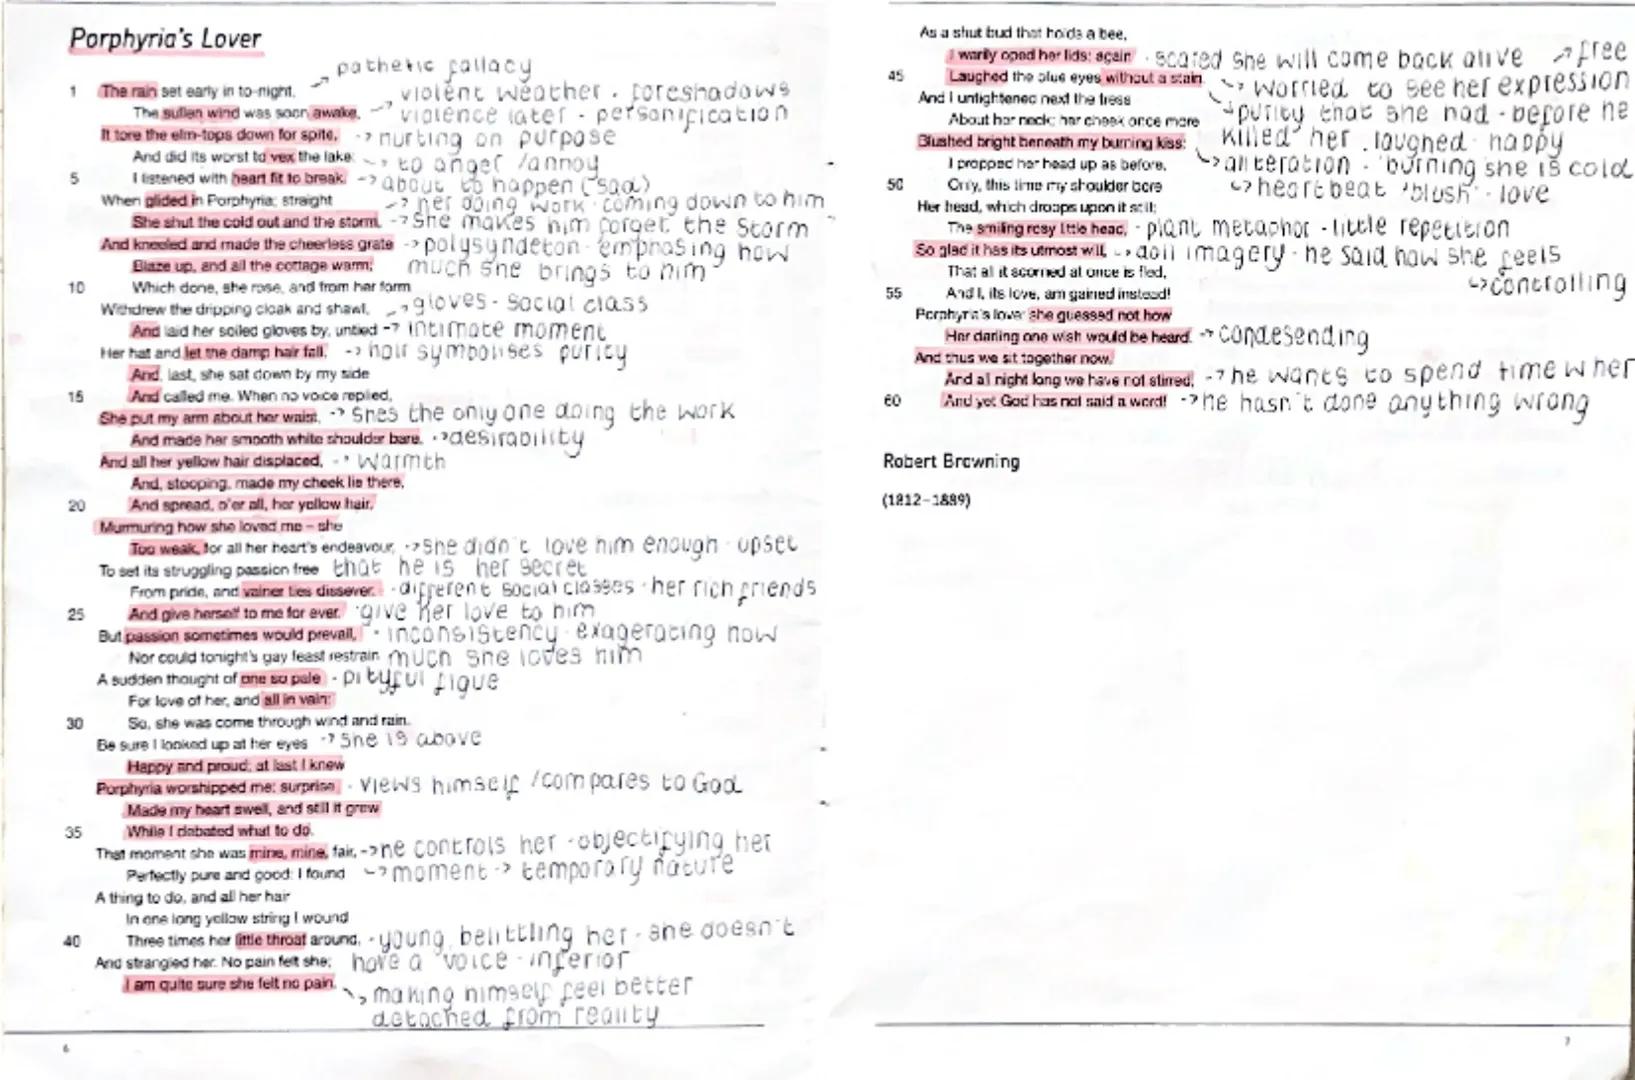 Porphyria's Lover
pathetic fallacy
1 The rain set early in to-night, violent weather . foreshadows
The sullen wind was soon awake, violence later - personification
It tore the elm-tops down for spite, -> hurting on purpose
And did its worst to vex the lake: -> to anger / annoy
5 I listened with heart fit to break. -> about to happen (sad)
When glided in Porphyria; straight -> her doing work - coming down to him
She shut the cold out and the storm, -> She makes him forget the storm
And kneeled and made the cheerless grate -> polysyndeton - emphasing how
Blaze up, and all the cottage warm; much she brings to him
10 Which done, she rose, and from her form
Withdrew the dripping cloak and shawl, -> gloves - social class
And laid her soiled gloves by, untied -> intimate moment
Her hat and let the damp hair fall, -> hair symbolises purity
And, last, she sat down by my side
15 And called me. When no voice replied,
She put my arm about her waist, -> Shes the only one doing the work
And made her smooth white shoulder bare, -> desirability
And all her yellow hair displaced, -> warmth
And, stooping, made my cheek lie there,
20 And spread, o'er all, her yellow hair,
Murmuring how she loved me – she
Too weak, for all her heart's endeavour, -> She didn't love him enough - upset
To set its struggling passion free that he is her secret
From pride, and vainer ties dissever, - different social classes - her rich friends
25 And give herself to me for ever. - give her love to him
But passion sometimes would prevail, - inconsistency - exagerating how
Nor could tonight's gay feast restrain much she loves him
A sudden thought of one so pale - pityful figue
For love of her, and all in vain:
30 So, she was come through wind and rain.
Be sure I looked up at her eyes -> She is above
Happy and proud; at last I knew
Porphyria worshipped me: surprise - views himself / compares to God
Made my heart swell, and still it grew
35 While I debated what to do.
That moment she was mine, mine, fair, -> he controls her - objectifying her
Perfectly pure and good: I found -> moment -> temporary nature
A thing to do, and all her hair
In one long yellow string I wound
40 Three times her little throat around, - young, belittling her - she doesn't
And strangled her. No pain felt she; have a voice - inferior
I am quite sure she felt no pain. -> making himself feel better
detached from reality
6
As a shut bud that holds a bee,
I warily oped her lids: again - scared she will come back alive -> free
45 Laughed the blue eyes without a stain. -> worried to see her expression
And I untightened next the tress -> purity that she had - before he
About her neck; her cheek once more killed her . laughed - happy
Blushed bright beneath my burning kiss: -> alliteration - 'burning' she is cold
I propped her head up as before, -> heartbeat 'blush' - love
50 Only, this time my shoulder bore
Her head, which droops upon it still:
The smiling rosy little head, - plant metaphor - little repetition
So glad it has its utmost will, -> doll imagery - he said how she feels
That all it scorned at once is fled, -> controlling
55 And I, its love, am gained instead!
Porphyria's love: she guessed not how
Her darling one wish would be heard. -> condesending
And thus we sit together now,
And all night long we have not stirred, -> he wants to spend time w her
60 And yet God has not said a word! -> he hasn't done anything wrong
Robert Browning
(1812–1889)
7